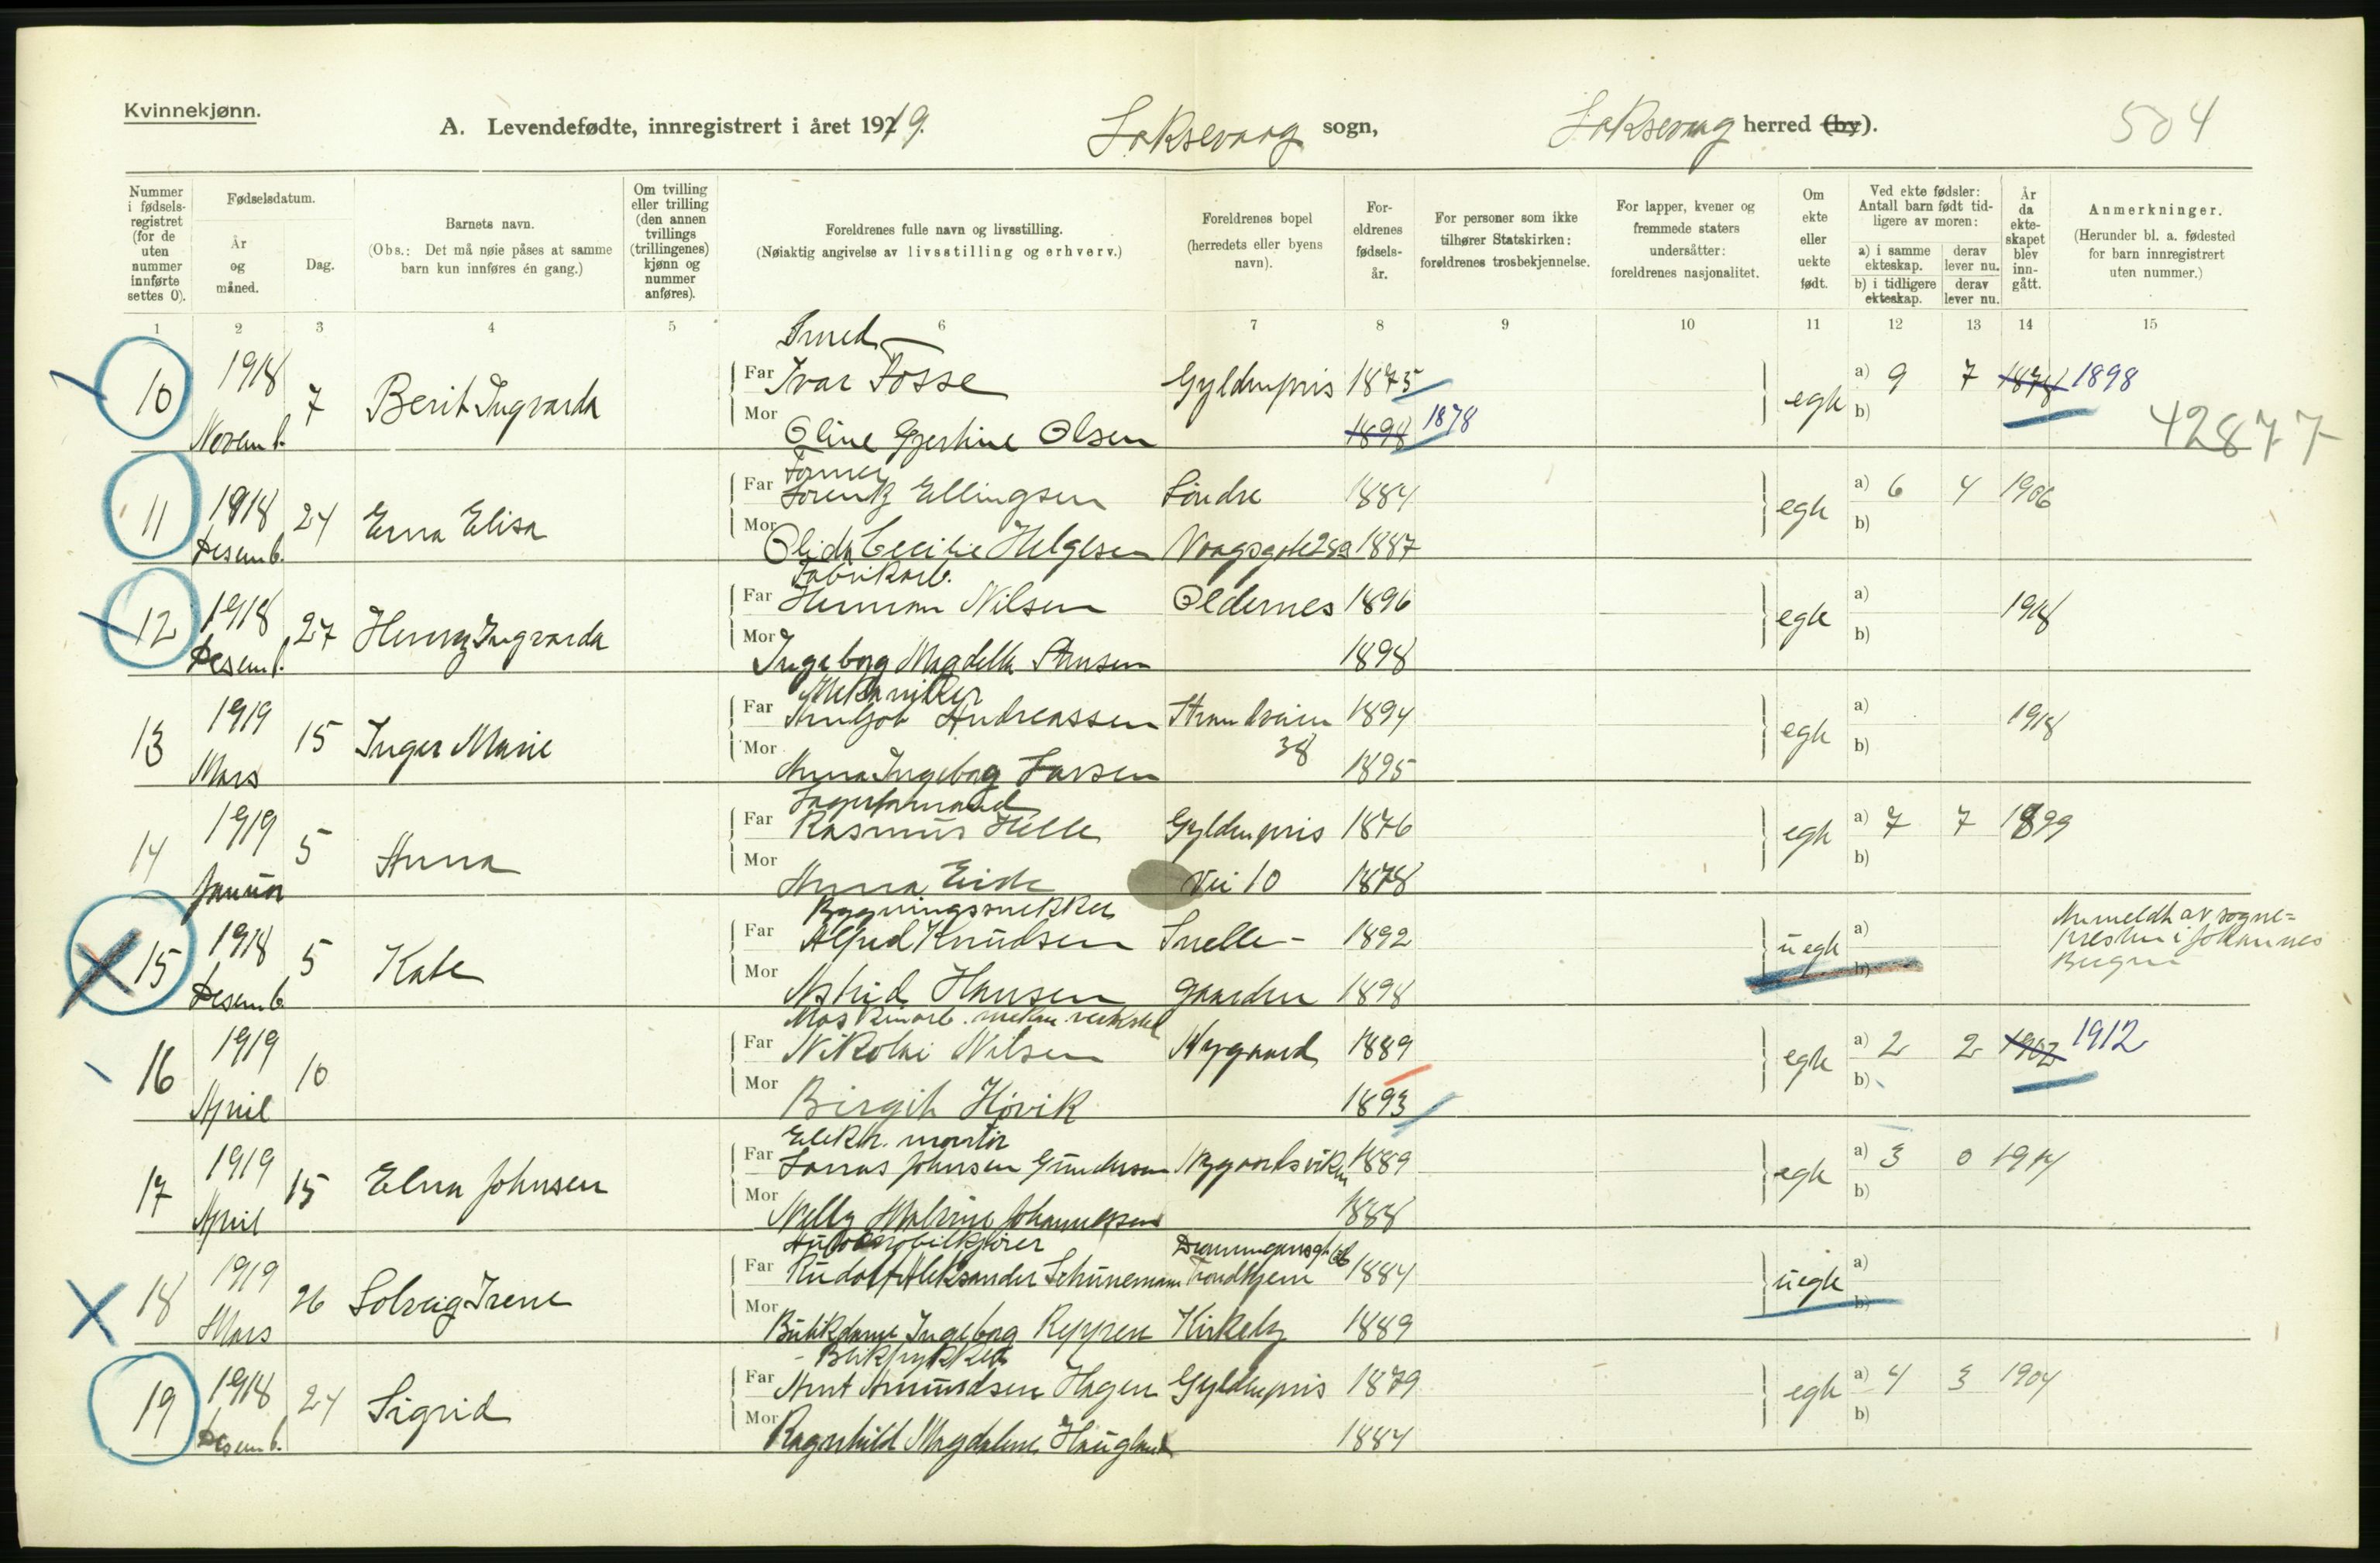 Kvinnekjønn.
A. Levendefødte, innregistrert i året 1919. Laksevaag sogn, Laksevaag herred (by). 504
Nummer i fødsels-registret (for de uten nummer innførte settes 0).
Fødselsdatum.
År og måned.
Dag.
Barnets navn.
(Obs.: Det må nøie påses at samme barn kun innføres én gang.)
Om tvilling eller trilling (den annen tvillings (trillingenes) kjønn og nummer anføres).
Foreldrenes fulle navn og livsstilling.
(Nøiaktig angivelse av livsstilling og erhverv.)
Foreldrenes bopel (herredets eller byens navn).
For-eldrenes fødsels-år.
For personer som ikke tilhører Statskirken: foreldrenes trosbekjennelse.
For lapper, kvener og fremmede staters undersåtter: foreldrenes nasjonalitet.
Om ekte eller uekte født.
Ved ekte fødsler: Antall barn født tid-ligere av moren:
a) i samme ekteskap.
derav lever nu.
b) i tidligere ekteskap.
derav lever nu.
År da ekte-skapet blev inn-gått.
Anmerkninger.
(Herunder bl. a. fødested for barn innregistrert uten nummer.)
1 2 3 4 5 6 7 8 9 10 11 12 13 14 15
Smed
10 1918 Novemb. 7 Berit Ingvarda Far Ivar Fosse Gyldenpris 1875 egte a) 9 7 1878 1898
Mor Oline Gjertine Olsen 1898 1878 b) 42877
11 1918 Desemb. 24 Erna Elisa Far Lorentz Ellingsen Søndre 1884 egte a) 6 4 1906
Mor Olida Cecilie Helgesen Vaagsgate 28a 1887 b)
Fabrikarb.
12 1918 Desemb. 27 Henny Ingvarda Far Herman Nilsen Oldernes 1896 egte a) 1918
Mor Ingeborg Magdella Hansen 1898 b)
Mekaniker
13 1919 Mars 15 Inger Marie Far Andreassen Strandveien 1894 egte a) 1918
Mor Anna Ingeborg Larsen 38 1895 b)
Lagerformand
14 1919 Januar 5 Anna Far Rasmus Helle Gyldenpris 1876 egte a) 7 7 1899
Mor Anna Eide vei 10 1878 b)
Bygningssnekker
15 1918 Desemb. 5 Kate Far Alfred Knudsen Snelle- 1892 uegte a) Anmeldt av sogne=
presten i Johannes
Bergen
Mor Astrid Hansen gaarden 1898 b)
Maskinarb. mekan. verksted
16 1919 April 10 Far Nikolai Nilsen Nygaard 1889 egte a) 2 2 1902 1912
Mor Birgit Høvik 1893 b)
Elektr. montør
17 1919 April 15 Elna Johnsen Far Johnsen Gundersen Nygaardsviken 1889 egte a) 3 0 1914
Mor Nelly Malvine Johannessen 1888 b)
Automobilkjører
18 1919 Mars 26 Solveig Irene Far Rudolf Aleksander Schünemann Trondhjem 1884 uegte a)
Mor Butikdame Ingeborg Reppen Kirkeby 1889 b)
Bliktrykker
19 1918 Desemb. 24 Sigrid Far Arnt Amundsen Hagen Gyldenpris 1879 egte a) 4 3 1904
Mor Ragnhild Magdalene Haugland 1884 b)